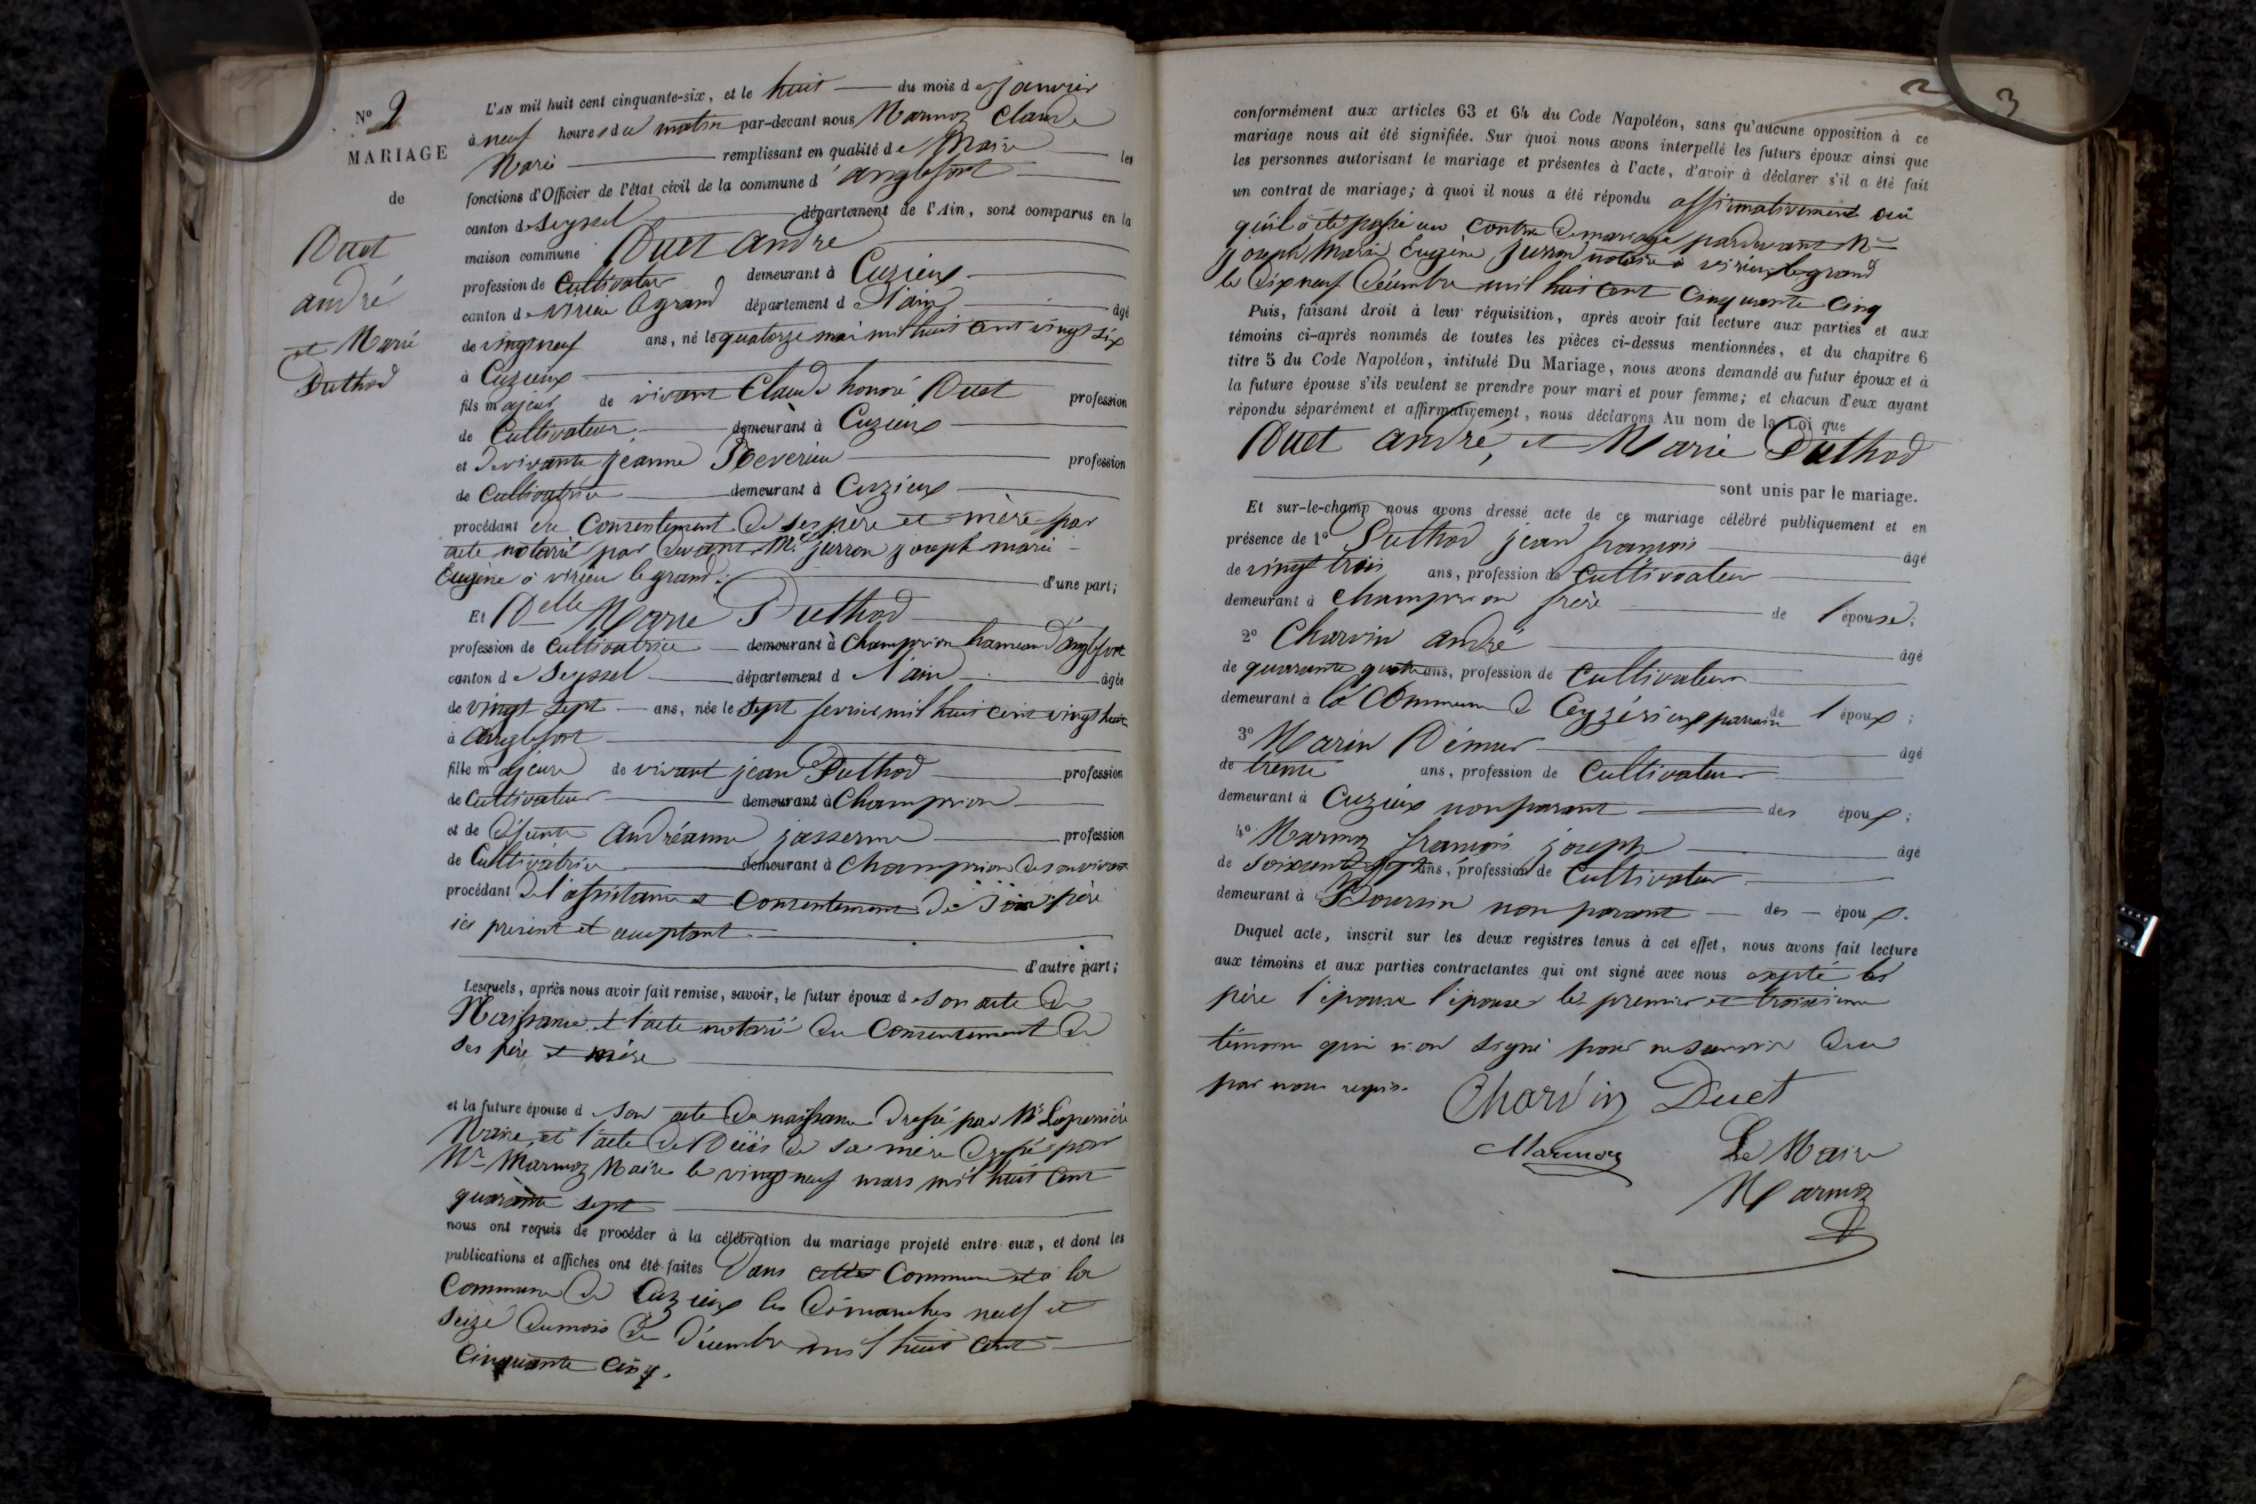 N° 2
MARIAGE
de
Duet
andré
et Marie
Duthod
L'AN mil huit cent cinquante-six, et le huit du mois de Janvier
à neuf heures du matin par-devant nous Marmoz Claude
Marie remplissant en qualité de Maire les
fonctions d'Officier de l'état civil de la commune d'anglefort
canton de Seyssel département de l'Ain, sont comparus en la
maison commune Duet andré
profession de Cultivateur demeurant à Cuzieux
canton de virieu legrand département d l'ain âgé
de vingt neuf ans, né le quatorze mai mil huit cent vingt six
à Cuzieux
fils majeur de vivant Claude honoré Duet profession
de Cultivateur demeurant à Cuzieux
et de vivante jeanne profession
de Cultivatrice demeurant à Cuzieux
procédant du Consentement de ses père et mère par
acte notarié par devant Me jusson joseph marie
Eugène à virieu le grand d'une part;
Et Delle Marie Duthod
profession de Cultivatrice demeurant à Champrion hameau d'anglefort
canton de Seyssel département d l'ain âgée
de vingt sept ans, née le sept fevrier mil huit cent vingt huit
à Anglefort
fille majeure de vivant jean Duthod profession
de Cultivateur demeurant à Champrion
et de défunte andréanne jasserme profession
de Cultivatrice demeurant à Champrion de son vivant
procédant de l'assistance et Consentement de son père
ici present et acceptant
d'autre part;
Lesquels, après nous avoir fait remise, savoir, le futur époux de son acte de
Naissance et l'acte notarié du Consentement de
ses père et mère
et la future épouse d son acte de naissance dressé par Mr Laperrière
Maire, et l'acte de Décès de sa mère dressé par
Mr Marmoz Maire le vingt neuf mars mil huit cent
quarante sept
nous ont requis de procéder à la célébration du mariage projeté entre eux, et dont les
publications et affiches ont été faites Dans cette Commune et à la
Commune de Cuzieux les dimanches neuf et
seize du mois de décembre mil huit cent
Cinquante cinq.
3
conformément aux articles 63 et 64 du Code Napoléon, sans qu'aucune opposition à ce
mariage nous ait été signifiée. Sur quoi nous avons interpellé les futurs époux ainsi que
les personnes autorisant le mariage et présentes à l'acte, d'avoir à déclarer s'il a été fait
un contrat de mariage; à quoi il nous a été répondu affirmativement oui
qu'il a été passé un contra de mariage pardevant Me
joseph Marie Eugène jusson notaire à virieu le grand
le dix neuf décembre mil huit cent Cinquante Cinq
Puis, faisant droit à leur réquisition, après avoir fait lecture aux parties et aux
témoins ci-après nommés de toutes les pièces ci-dessus mentionnées, et du chapitre 6
titre 5 du Code Napoléon, intitulé Du Mariage, nous avons demandé au futur époux et à
la future épouse s'ils veulent se prendre pour mari et pour femme; et chacun d'eux ayant
répondu séparément et affirmativement, nous déclarons Au nom de la Loi que
Duet andré, et Marie Duthod
sont unis par le mariage.
Et sur-le-champ nous avons dressé acte de ce mariage célébré publiquement et en
présence de 1° Duthod jean françois âgé
de vingt trois ans, profession de Cultivateur
demeurant à Champrion frère de l'épouse;
2° Charvin andré âgé
de quarante quatre ans, profession de Cultivateur
demeurant à la Commune de Ceyzérieux parrain de l'époux;
3° Marin Démur âgé
de trente ans, profession de Cultivateur
demeurant à Cuzieux non parent des époux;
4° Marmoz françois joseph âgé
de soixante sept ans, profession de Cultivateur
demeurant à Boursin non parent des époux.
Duquel acte, inscrit sur les deux registres tenus à cet effet, nous avons fait lecture
aux témoins et aux parties contractantes qui ont signé avec nous excepté les
père l'épouse les premier et troisième
témoin qui n'on signé pour ne savoir de ce
par nous requis.
Charvin Duet
Marmoz Le Maire
Marmoz